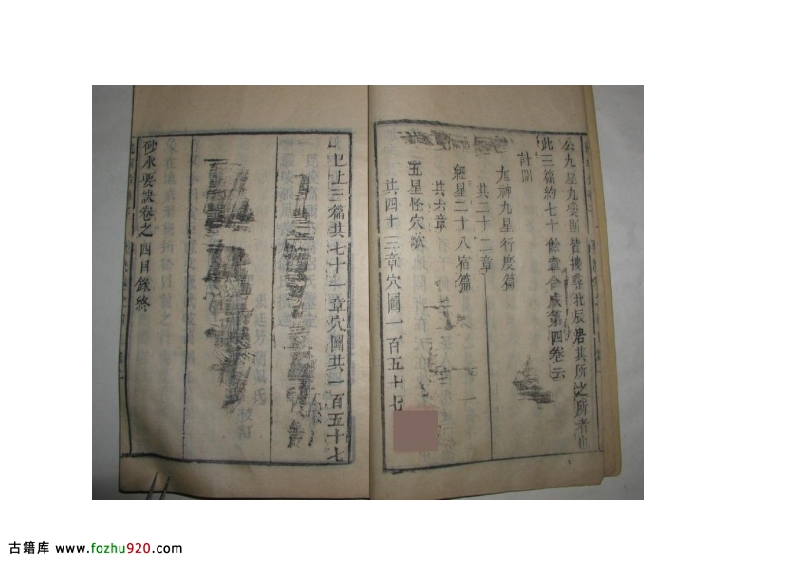 公九星九變則皆摟尋北辰君其所之所者也
此三篇約七十餘章合成第四卷云
計開
九神九星行度篇
共二十二章
經星二十八宿篇
共六章
五星怪穴歌
共四十三章穴圖一百五十七
已上三篇共七十一章穴圖共一百五十七
砂水要訣卷之四目錄終
古籍库 www.fozhu920.com